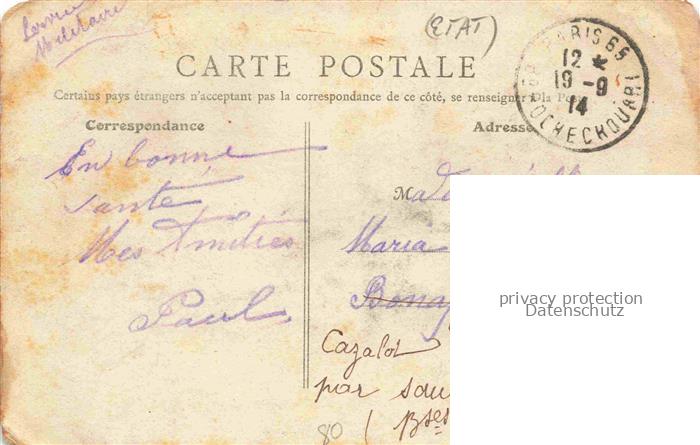 Service
Militaire
(ETAT)
CARTE POSTALE
Certains pays étrangers n'acceptant pas la correspondance de ce côté, se renseigner à la Po
PARIS 65
12 *
19 - 9
14
R. DE ROCHECHOUART
Correspondance
Adresse
En bonne
santé
Mes Amitiés
Paul
Mad
Maria
Bona
Cazalot
par Sau
( Bses
80
privacy protection
Datenschutz